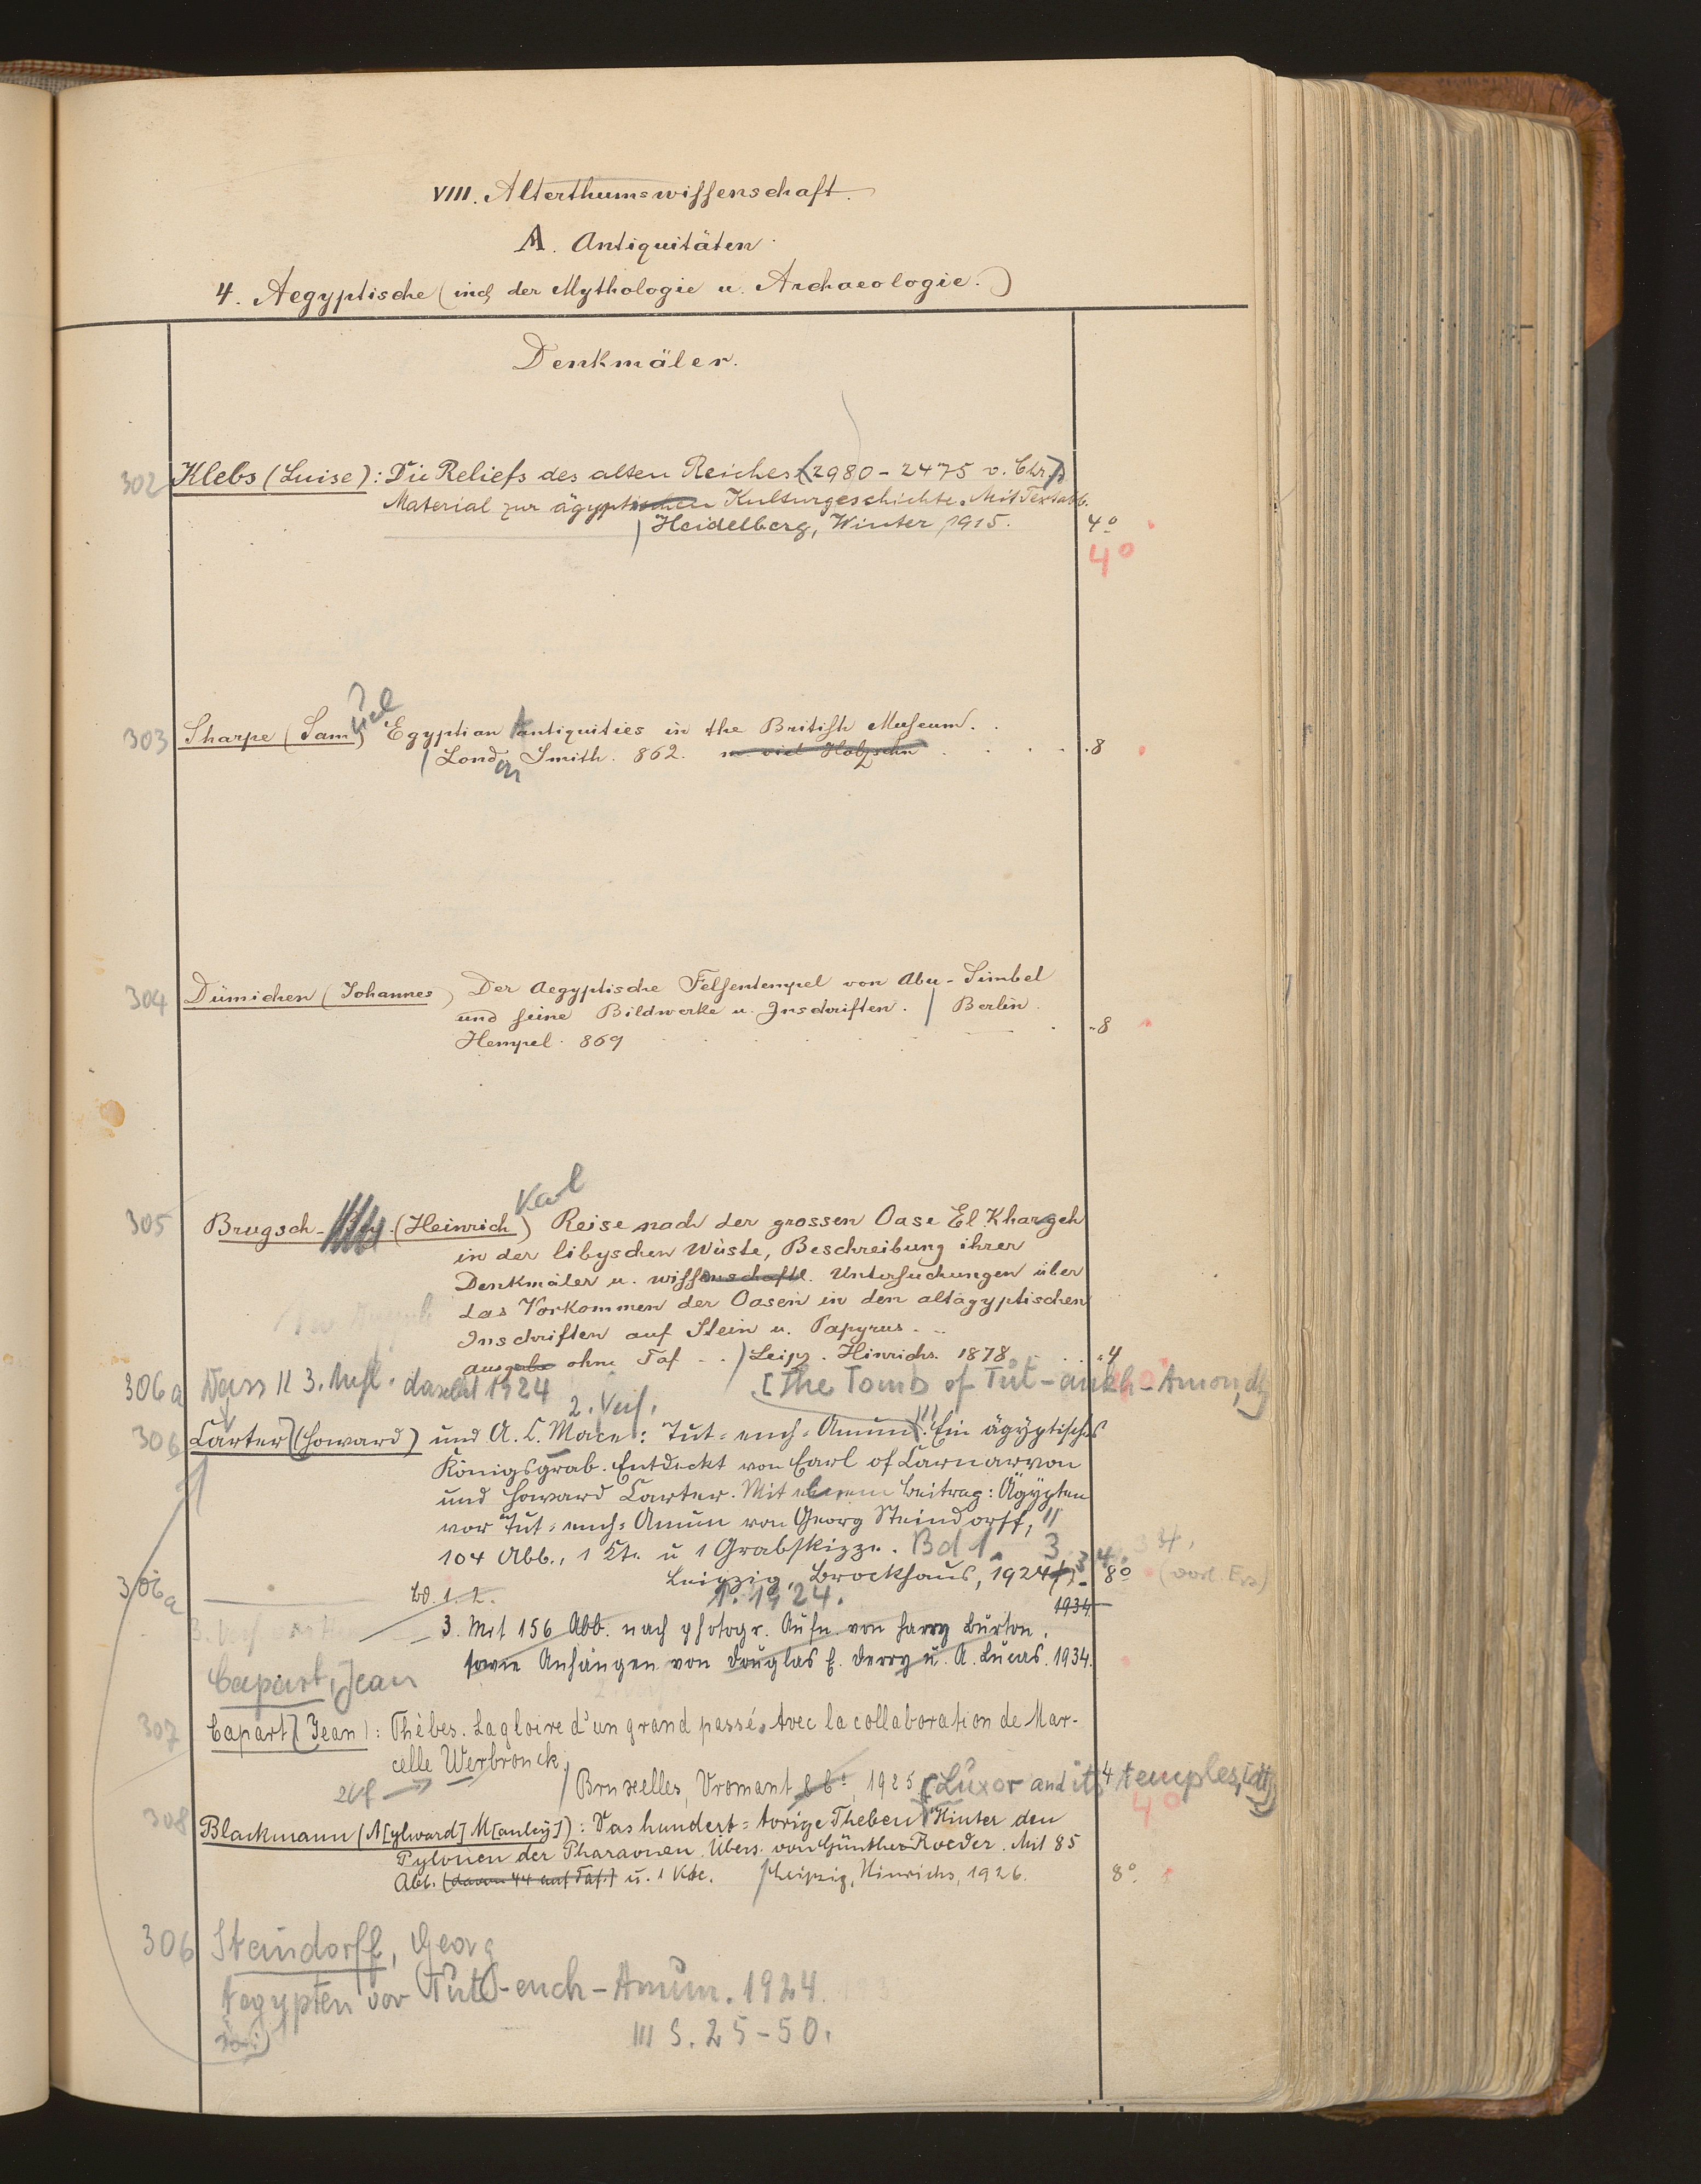 VIII. Alterthumswissenschaft.
A. Antiquitäten.
4. Aegyptische (incl. der Mythologie u. Archaeologie.)
Denkmäler.
302 Klebs (Luise): Die Reliefs des alten Reiches (2980-2475 v. Chr.)
Material zur ägyptischen Kulturgeschichte. Mit Textabb.
Heidelberg, Winter, 1915. 4º
4º
uel
303 Sharpe (Sam) Egyptian Antiquities in the British Museum.
London Smith. 862. m. viel Holzschn 8
304 Dümichen (Johannes) Der Aegyptische Felsentempel von Abu-Simbel
und seine Bildwerke u. Inschriften. Berlin.
Hempel. 869 8
Karl
305 Brugsch- (Heinrich) Reise nach der grossen Oase El Khargeh
in der libyschen Wüste, Beschreibung ihrer
Denkmäler u. wissenschaftl. Untersuchungen über
das Vorkommen der Oasen in den altägyptischen
Inschriften auf Stein u. Papyrus.
Ausgabe ohne Taf. Leipz. Hinrichs. 1878. 4
306a 3. Aufl. 1924 [The Tomb of Tut-ankh-Amon, dt]
2. Verf.
306 Carter (Howard) und A. C. Mace: Tut-ench-Amun. Ein ägyptisches
Königsgrab. Entdeckt von Earl of Carnarvon
und Howard Carter. Mit einem Beitrag: Ägypten
vor Tut-ench-Amun von Georg Steindorff,
104 Abb., 1 Kt. u 1 Grabskizze. Bd 1. 3. 34,
Leipzig, Brockhaus, 1924 8º
306a Bd. 1. 2. 1. 1924. 1934
3. Mit 156 Abb. nach photogr. Aufn. von Harry Burton,
sowie Anhängen von Douglas E. Derry u. A. Lucas. 1934.
Capart, Jean
307 Capart (Jean): Thèbes. La gloire d'un grand passé. Avec la collaboration de Mar-
celle Werbrouck.
Bruxelles, Vromant & Cº, 1925 4
[Luxor and its temples, dt]
4º
308 Blackmann (A[ylward] M[anley]): Das hundert-torige Theben. Hinter den
Pylonen der Pharaonen. Übers. von Günther Roeder. Mit 85
Abb. (davon 44 auf Taf.) u. 1 Kte. Leipzig, Hinrichs, 1926. 8º
306 Steindorff, Georg
Aegypten vor Tut-ench-Amun. 1924.
III S. 25-50.